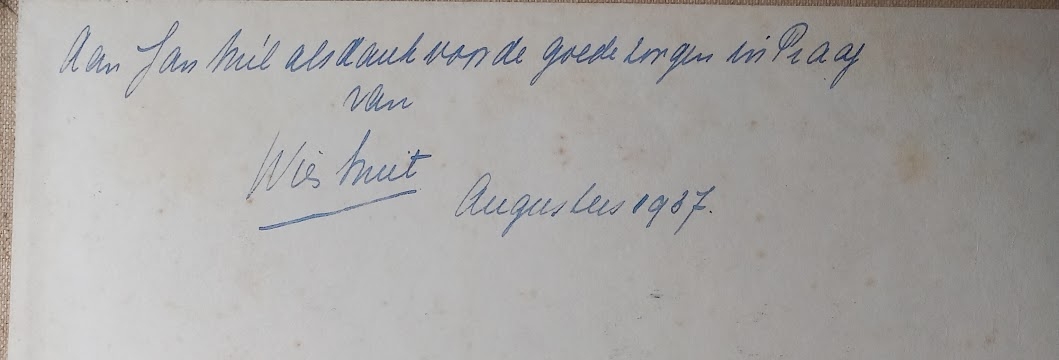 Aan Jan Mul als dank voor de goede zorgen in Praag
van
Wies
Augustus 1937.